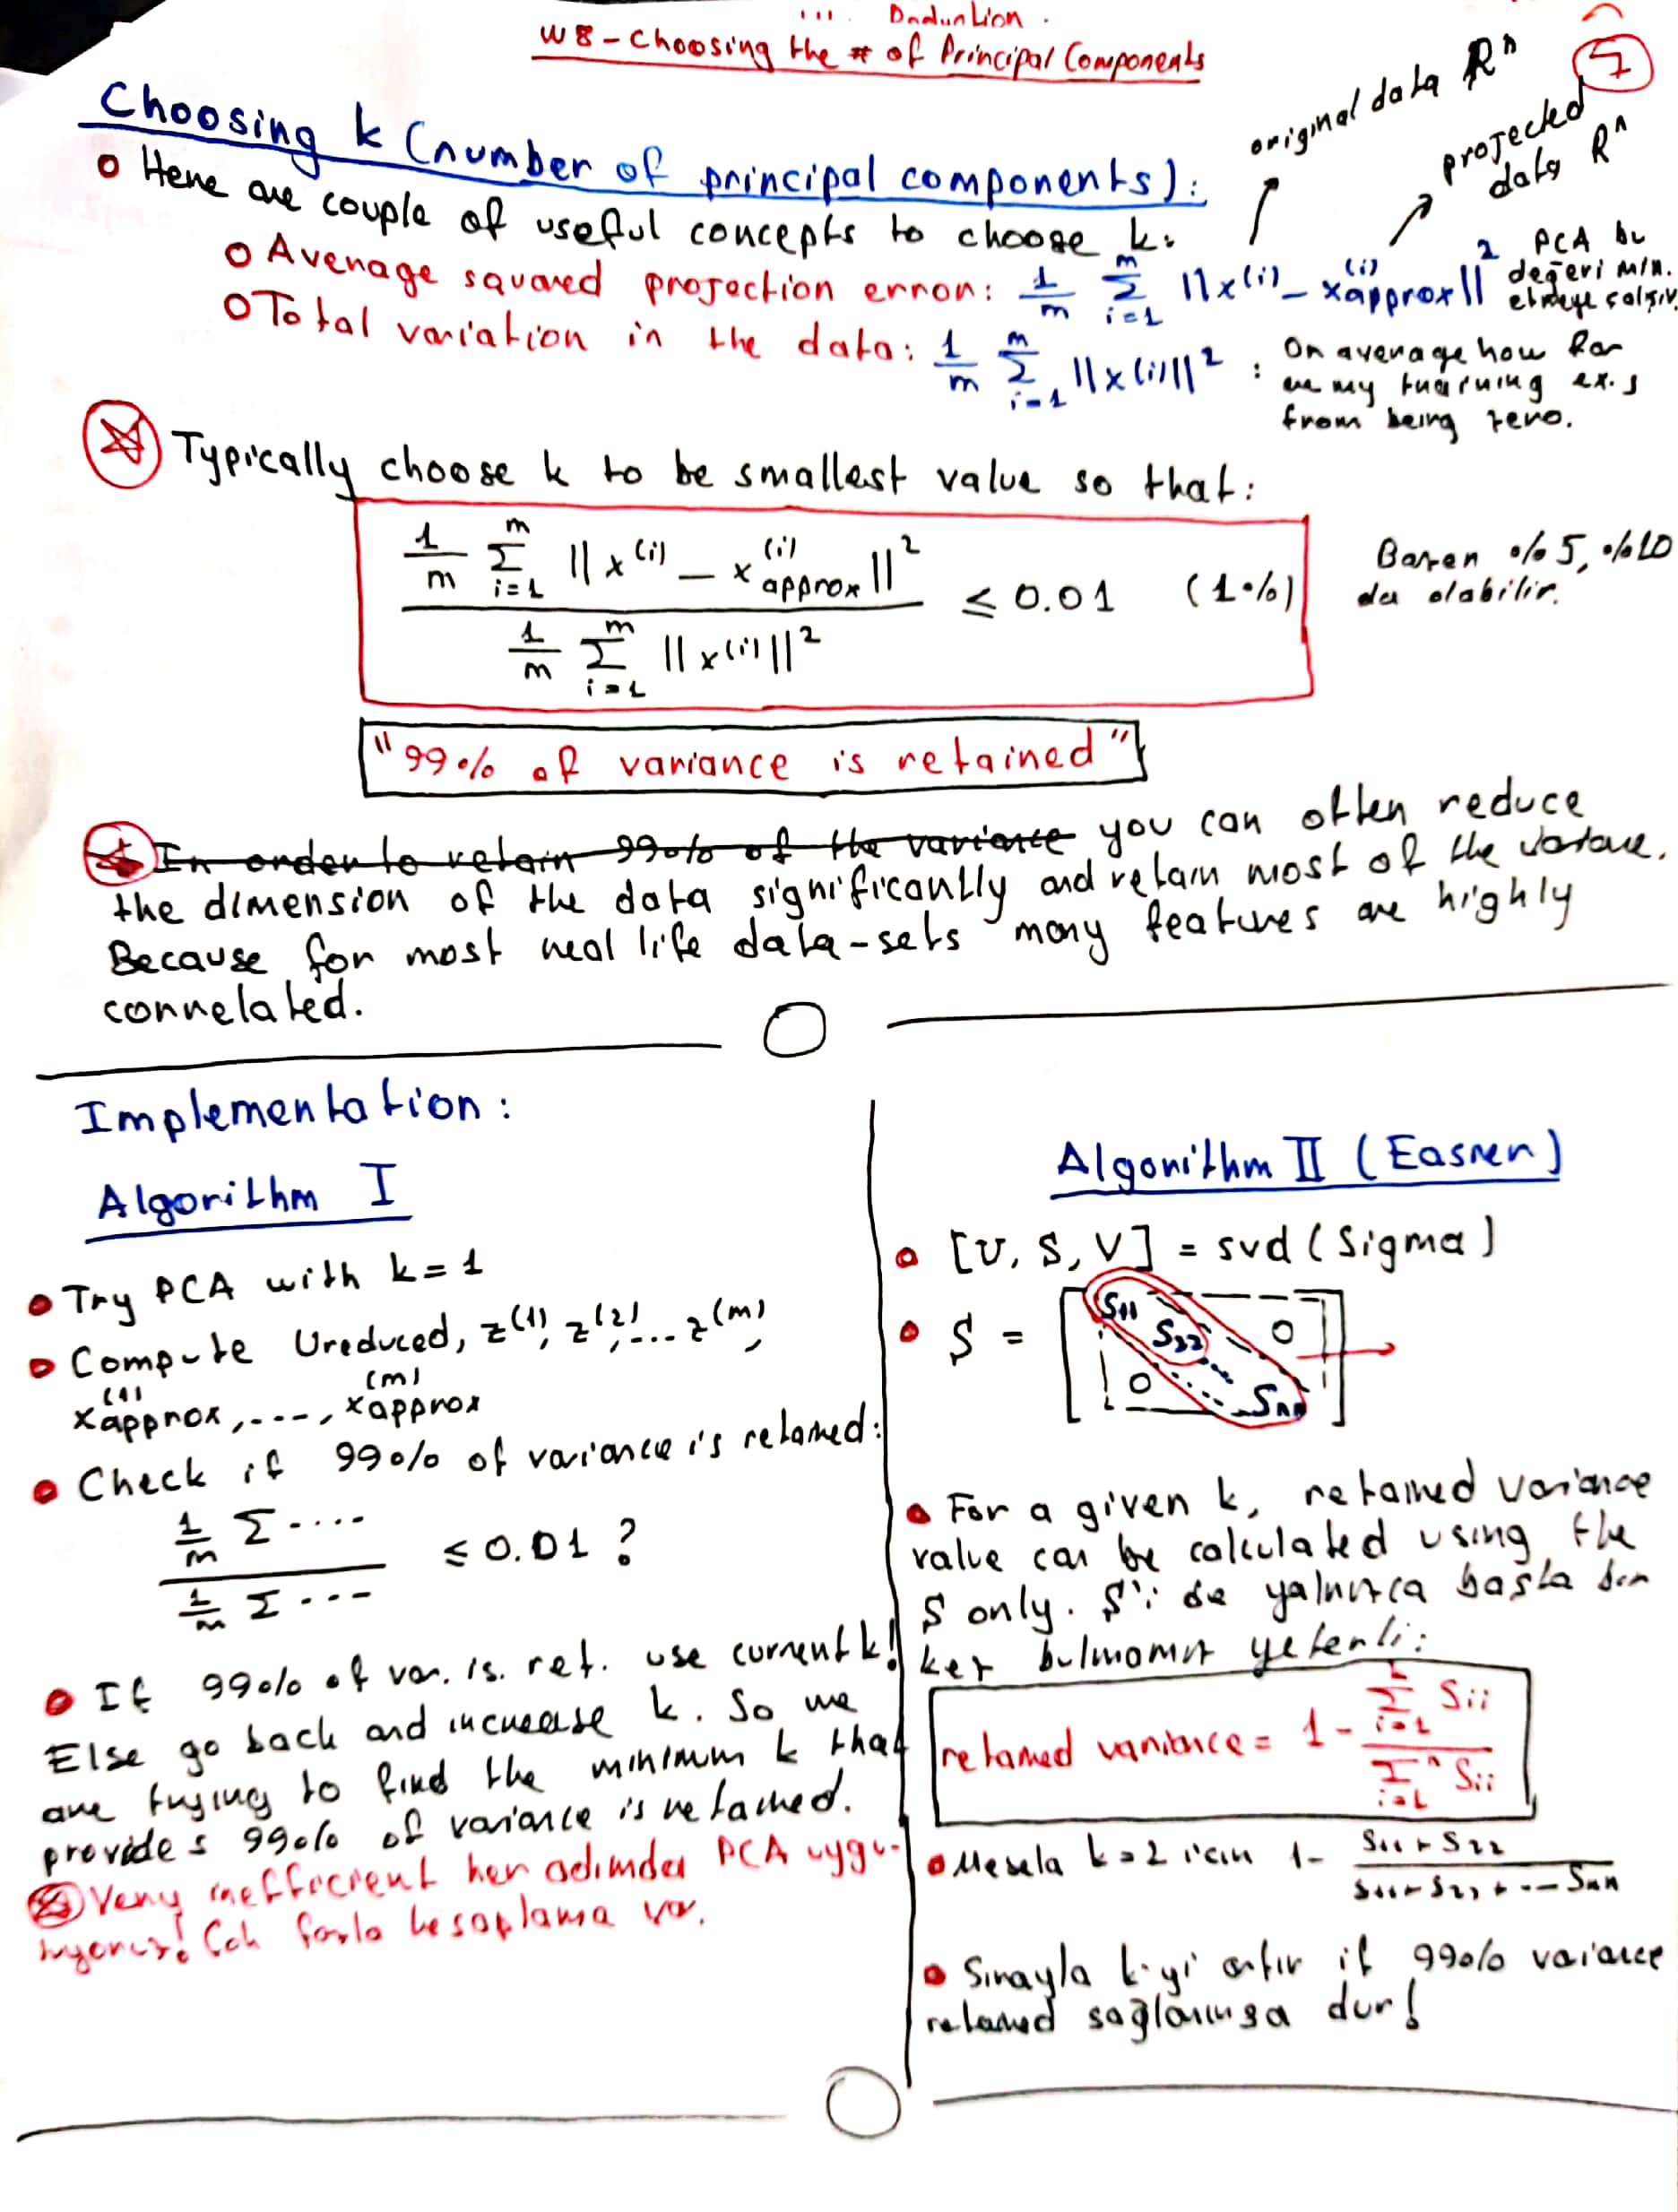 W8 - Choosing the # of Principal Components
7
Choosing k (number of principal components):
original data Rⁿ
projected data Rⁿ
o Here are couple of useful concepts to choose k:
o Average squared projection error: 1/m Σ_{i=1}^{m} ||x^(i) - x_approx^(i)||²
PCA bu
değeri min.
etmeye çalışır.
o Total variation in the data: 1/m Σ_{i=1}^{m} ||x^(i)||² :
On average how far
are my training ex.s
from being zero.
Typically choose k to be smallest value so that:
1/m Σ_{i=1}^{m} ||x^(i) - x_approx^(i)||²
/ 1/m Σ_{i=1}^{m} ||x^(i)||² ≤ 0.01 (1%)
Bazen %5, %10
da olabilir.
"99% of variance is retained"
In order to retain 99% of the variance you can often reduce
the dimension of the data significantly and retain most of the variance.
Because for most real life data-sets many features are highly
correlated.
Implementation:
Algorithm I
Try PCA with k=1
Compute Ureduced, z^(1), z^(2), ... z^(m),
x_approx^(1), ..., x_approx^(m)
Check if 99% of variance is retained:
1/m Σ ....
/ 1/m Σ ... ≤ 0.01 ?
If 99% of var. is. ret. use current k!
Else go back and increase k. So we
are trying to find the minimum k that
provides 99% of variance is retained.
Very inefficient her adımda PCA uygu-
luyoruz! Çok fazla hesaplama var.
Algorithm II (Easier)
[U, S, V] = svd(Sigma)
S = [S11 S22 ... Snn 0 0]
For a given k, retained variance
value can be calculated using the
S only. S'i de yalnızca başta bir
kez bulmamız yeterli:
retained variance = 1 - Σ_{i=1}^{k} Sii / Σ_{i=1}^{n} Sii
Mesela k=2 için 1- S11 + S22 / S11 + S22 + ... Snn
Sırayla k'yi artır if 99% variance
retained sağlanırsa dur!